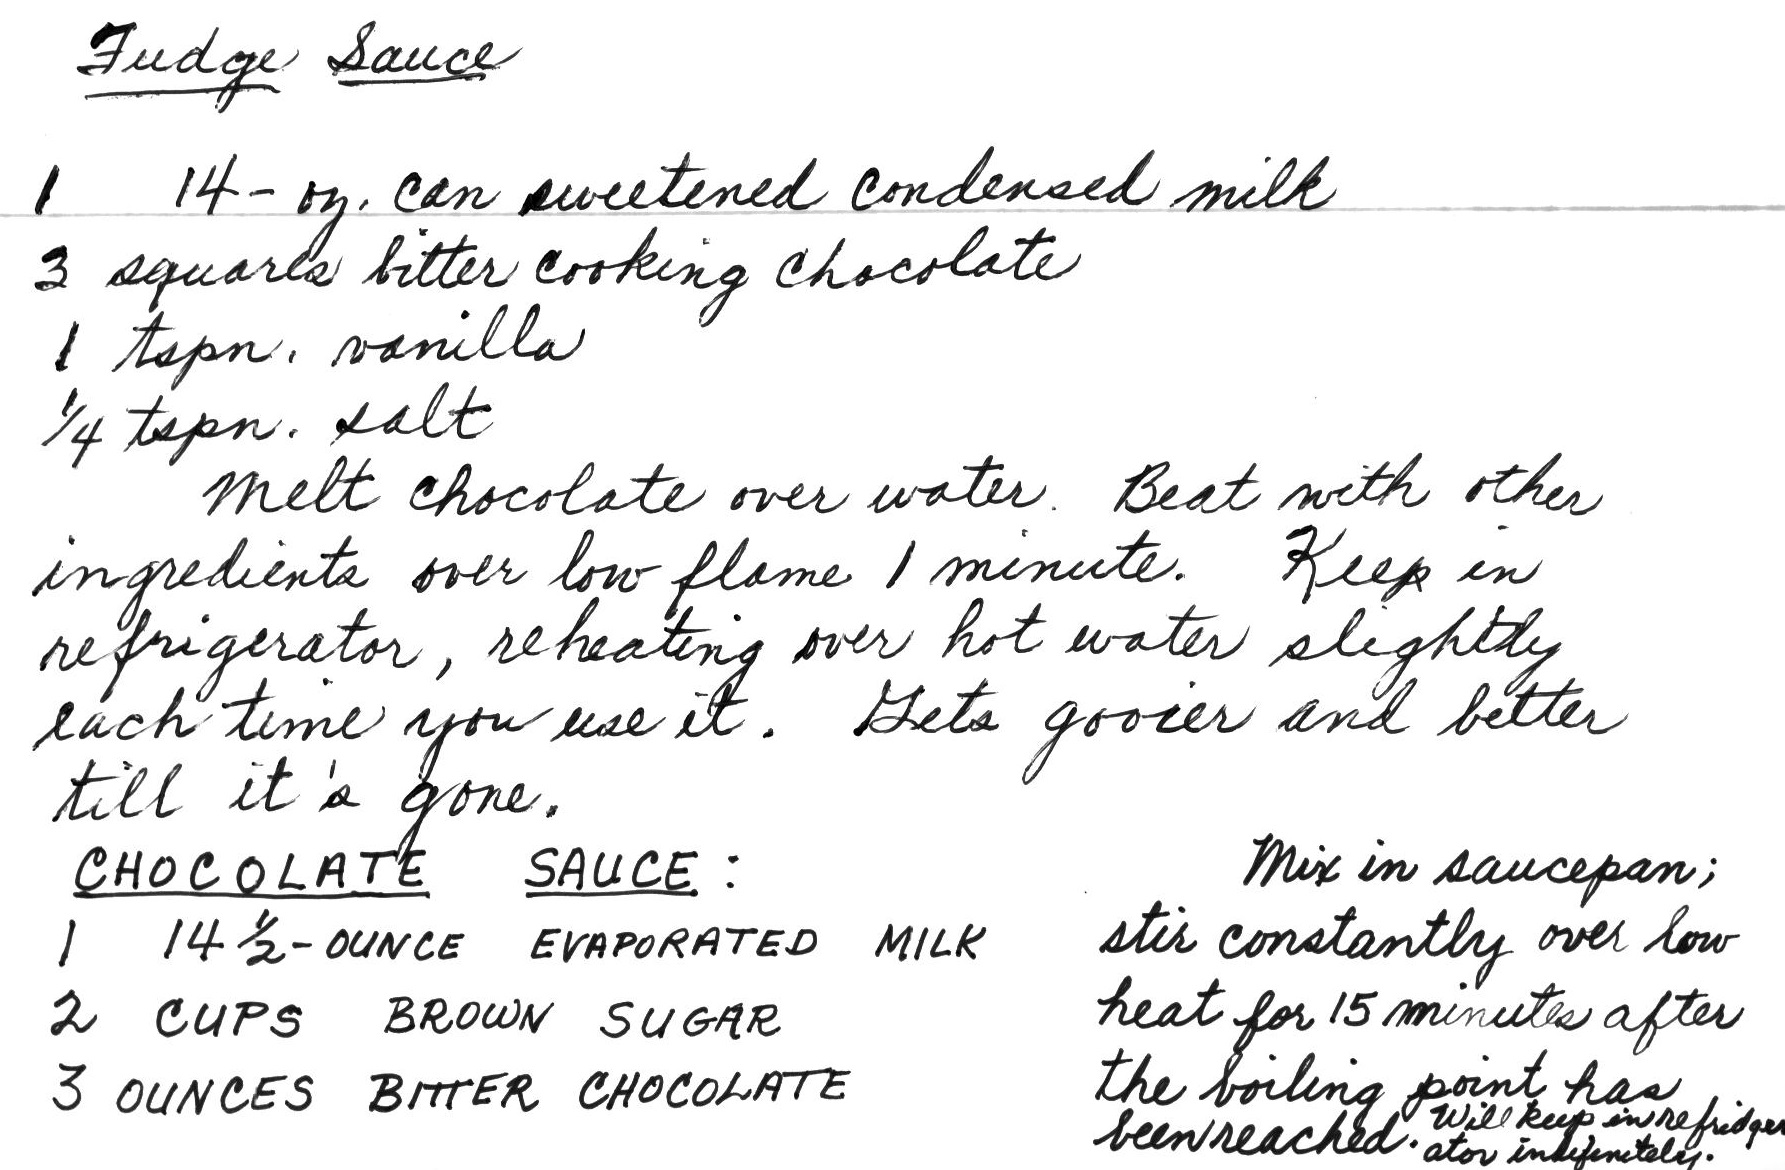 Fudge Sauce
1 14-oz. can sweetened condensed milk
3 squares bitter cooking chocolate
1 tspn. vanilla
1/4 tspn. salt
Melt chocolate over water. Beat with other
ingredients over low flame 1 minute. Keep in
refrigerator, reheating over hot water slightly
each time you use it. Gets gooier and better
till it's gone.
CHOCOLATE SAUCE:
1 14 1/2-OUNCE EVAPORATED MILK
2 CUPS BROWN SUGAR
3 OUNCES BITTER CHOCOLATE
Mix in saucepan;
stir constantly over low
heat for 15 minutes after
the boiling point has
been reached. Will keep in refridger
ator indefinitely.